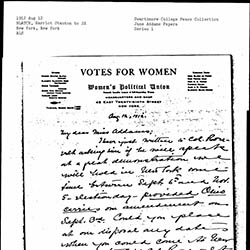 1912 Aug 12
BLATCH, Harriot Stanton to JA
New York, New York
ALS
Swarthmore College Peace Collection
Jane Addams Papers
Series 1
VOTES FOR WOMEN
Women's Political Union
HEADQUARTERS AND SHOP
46 EAST TWENTY-NINTH STREET
NEW YORK
Aug 12, 1912.
My dear Miss Addams:
I have just written to Col. Roose
velt asking him if he will speak
at a great demonstration we
will hold in New York some
time between Sept 6th and Nov.
5, election day, provided Ohio
carries our amendment on
Sept 3rd. Could you place
at our disposal any date
when you could come to New